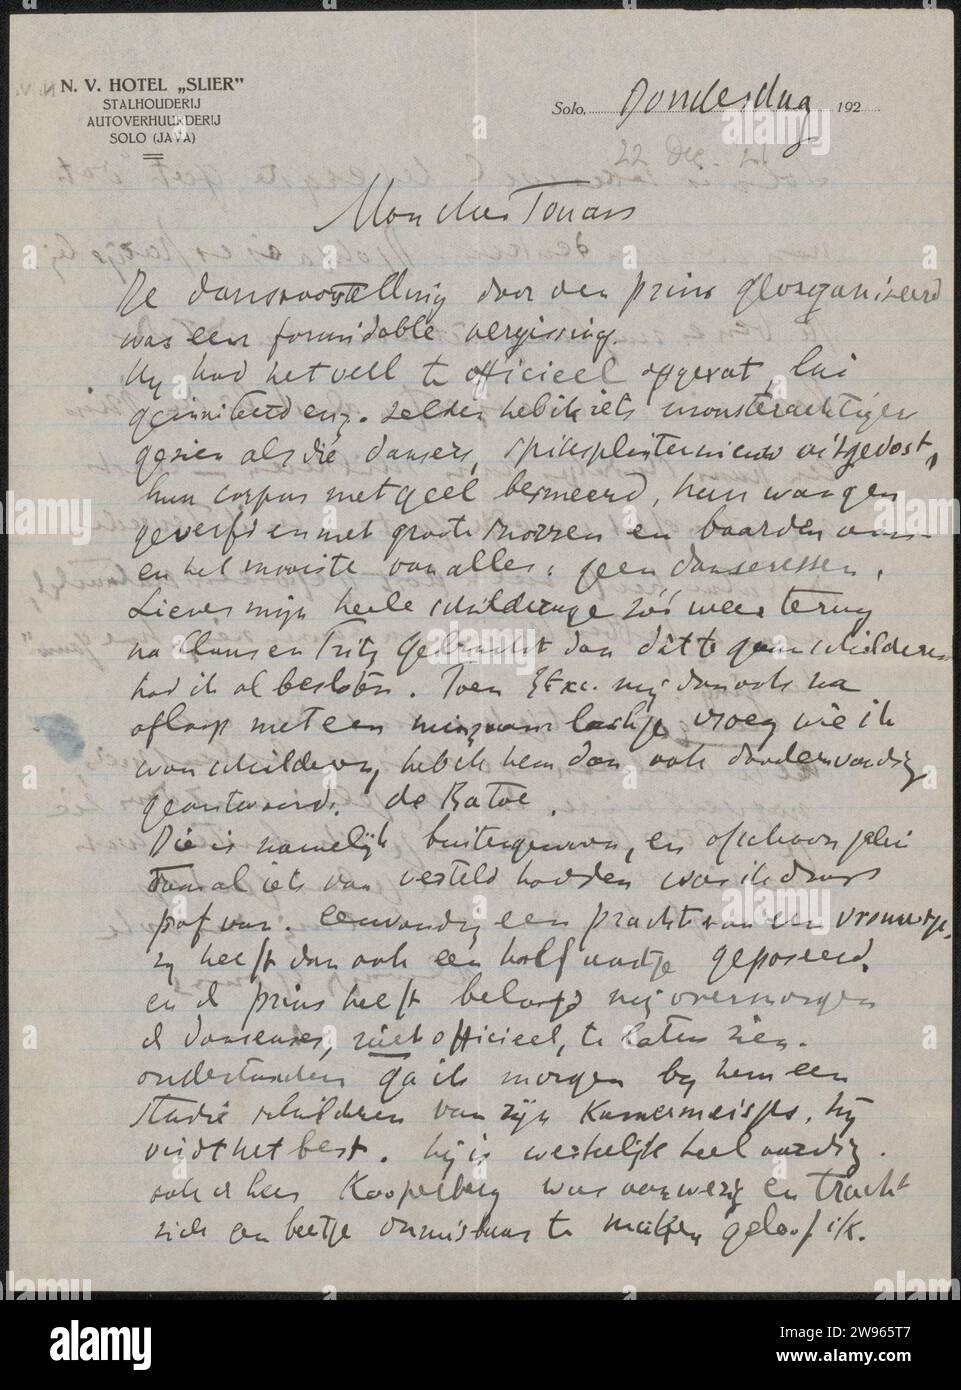 N. V. HOTEL „SLIER”
STALHOUDERIJ
AUTOVERHUURDERIJ
SOLO (JAVA)
Solo, Donderdag 192
22 Dec. 21
Mon cher
De dansvoorstelling door den prins georganiseerd
was een formidable vergissing.
Hy had het veel te officieel opgevat, lui
geinviteerd enz. zelden heb ik iets monsterachtigers
gezien als die dansers, spiksplinternieuw uitgedost,
hun corpus met geel besmeerd, hun wangen
geverfd en met groote snorren en baarden
en het mooiste van alles: geen danseressen.
Liever mijn heele schilderage zóó weer terug
na Hans en Fritz gebracht dan dát te gaan schilderen
had ik al besloten. Toen Z Exc. mij dan ook na
afloop met een minzaam lachje vroeg wie ik
wou schilderen, heb ik hem dan ook donderwoedig
geantwoord: de Ratoe.
Die is namelijk buitengewoon, en ofschoon jelui
me al iets van verteld hadden was ik
paf van. eenvoudig een pracht van een vrouwtje.
zy heeft dan ook een half uurtje geposeerd.
en d prins heeft beloofd mij overmorgen
d danseuses, niet officieel, te laten zien.
ondertusschen ga ik morgen by hem een
studie schilderen van zijn Kamermeisjes. hy
vindt het best. hij is werkelijk heel aardig.
ook d heer Kooperberg was aanwezig en tracht
zich een beetje onmisbaar te maken geloof ik.
alamy
Image ID: 2W965T7
www.alamy.com